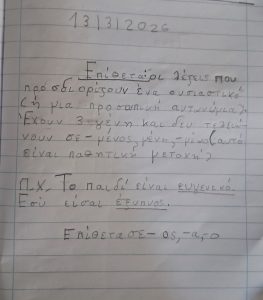 13/3/2026
Επίθετα: οι λέξεις που
προσδιορίζουν ένα ουσιαστικό
(ή μια προσωπική αντωνυμία).
Έχουν 3 γένη και δεν τελειώ
νουν σε -μένος, μένη, -μένο (αυτό
είναι παθητική μετοχή)
Π.χ. Το παιδί είναι ευγενικό.
Εσύ είσαι έξυπνος.
Επίθετα σε -ος, -α, -ο